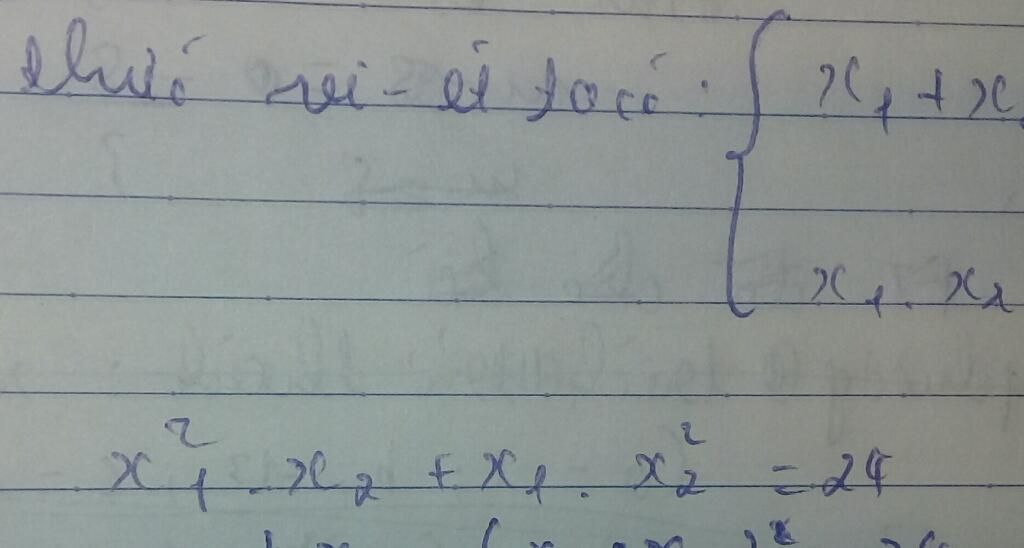 thức vi-et ta có : { x₁ + x
x₁ . x₂
x₁² . x₂ + x₁ . x₂² = 24